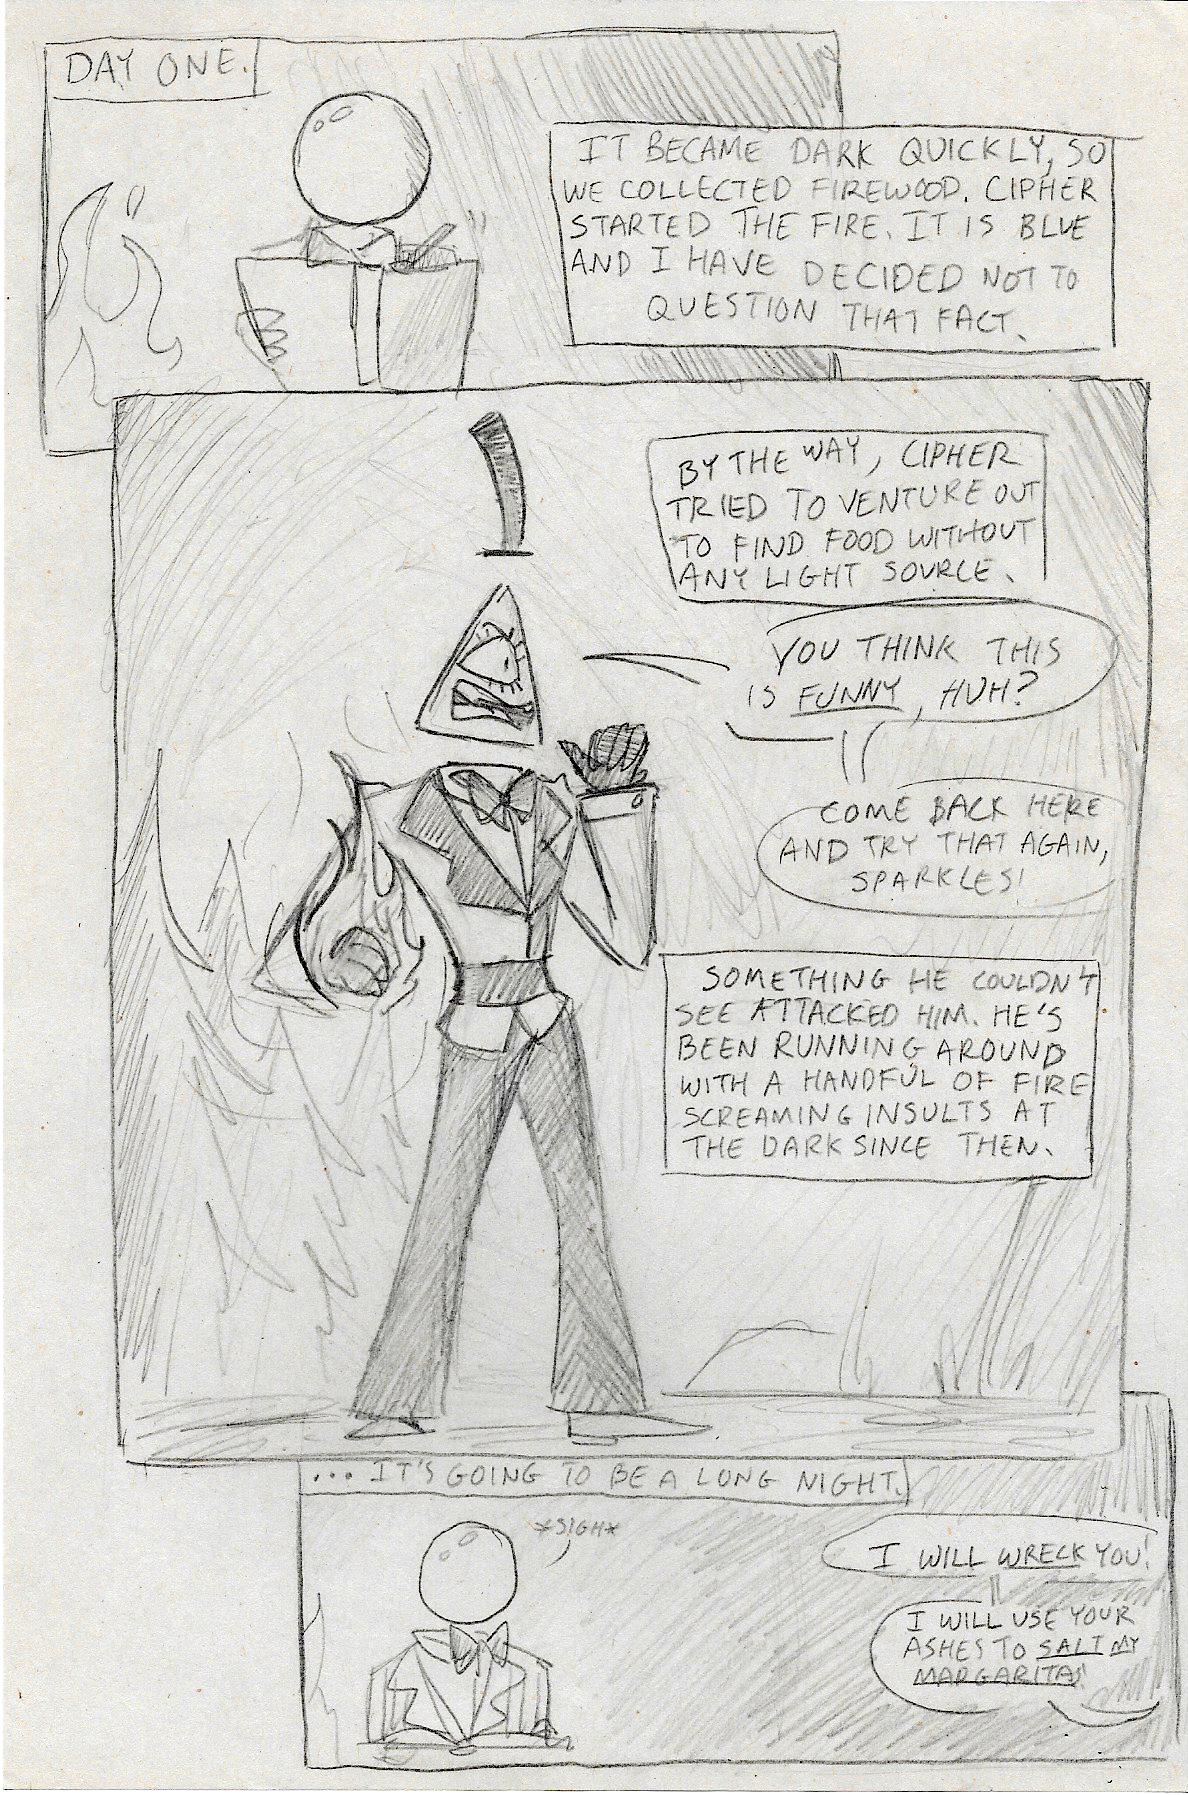 DAY ONE.
IT BECAME DARK QUICKLY, SO
WE COLLECTED FIREWOOD. CIPHER
STARTED THE FIRE. IT IS BLUE
AND I HAVE DECIDED NOT TO
QUESTION THAT FACT.
BY THE WAY, CIPHER
TRIED TO VENTURE OUT
TO FIND FOOD WITHOUT
ANY LIGHT SOURCE.
YOU THINK THIS
IS FUNNY, HUH?
COME BACK HERE
AND TRY THAT AGAIN,
SPARKLES!
SOMETHING HE COULDN'T
SEE ATTACKED HIM. HE'S
BEEN RUNNING AROUND
WITH A HANDFUL OF FIRE
SCREAMING INSULTS AT
THE DARK SINCE THEN.
...IT'S GOING TO BE A LONG NIGHT.
*SIGH*
I WILL WRECK YOU!
I WILL USE YOUR
ASHES TO SALT MY
MARGARITAS!